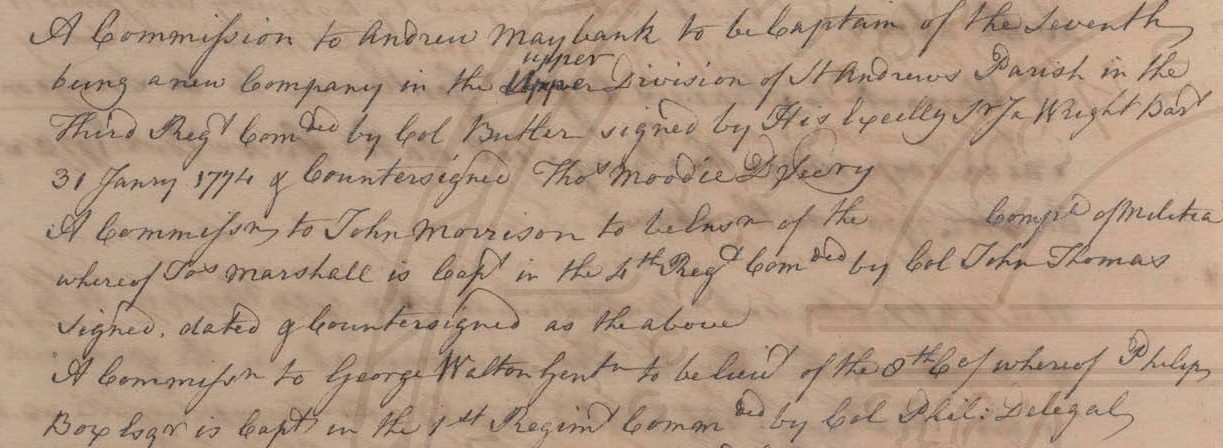 A Commission to Andrew Maybank to be Captain of the Seventh
upper
being a new Company in the Upper Division of St Andrews Parish in the
Third Regt Comded by Col Butler signed by His Excelly Sr Ja Wright Bart
31 Janry 1774 & Countersigned Thos Moodie D Secry
A Commissn to John Morrison to be Ensn of the Compa of Militia
whereof Jas Marshall is Capt in the 4th Regt Comded by Col John Thomas
signed, dated & Countersigned as the above
A Commissn to George Walton Gentn to be Lieut of the 8th Co of whereof Philip
Box Esqr is Capt in the 1st Regimt Commded by Col Phil: Delegal